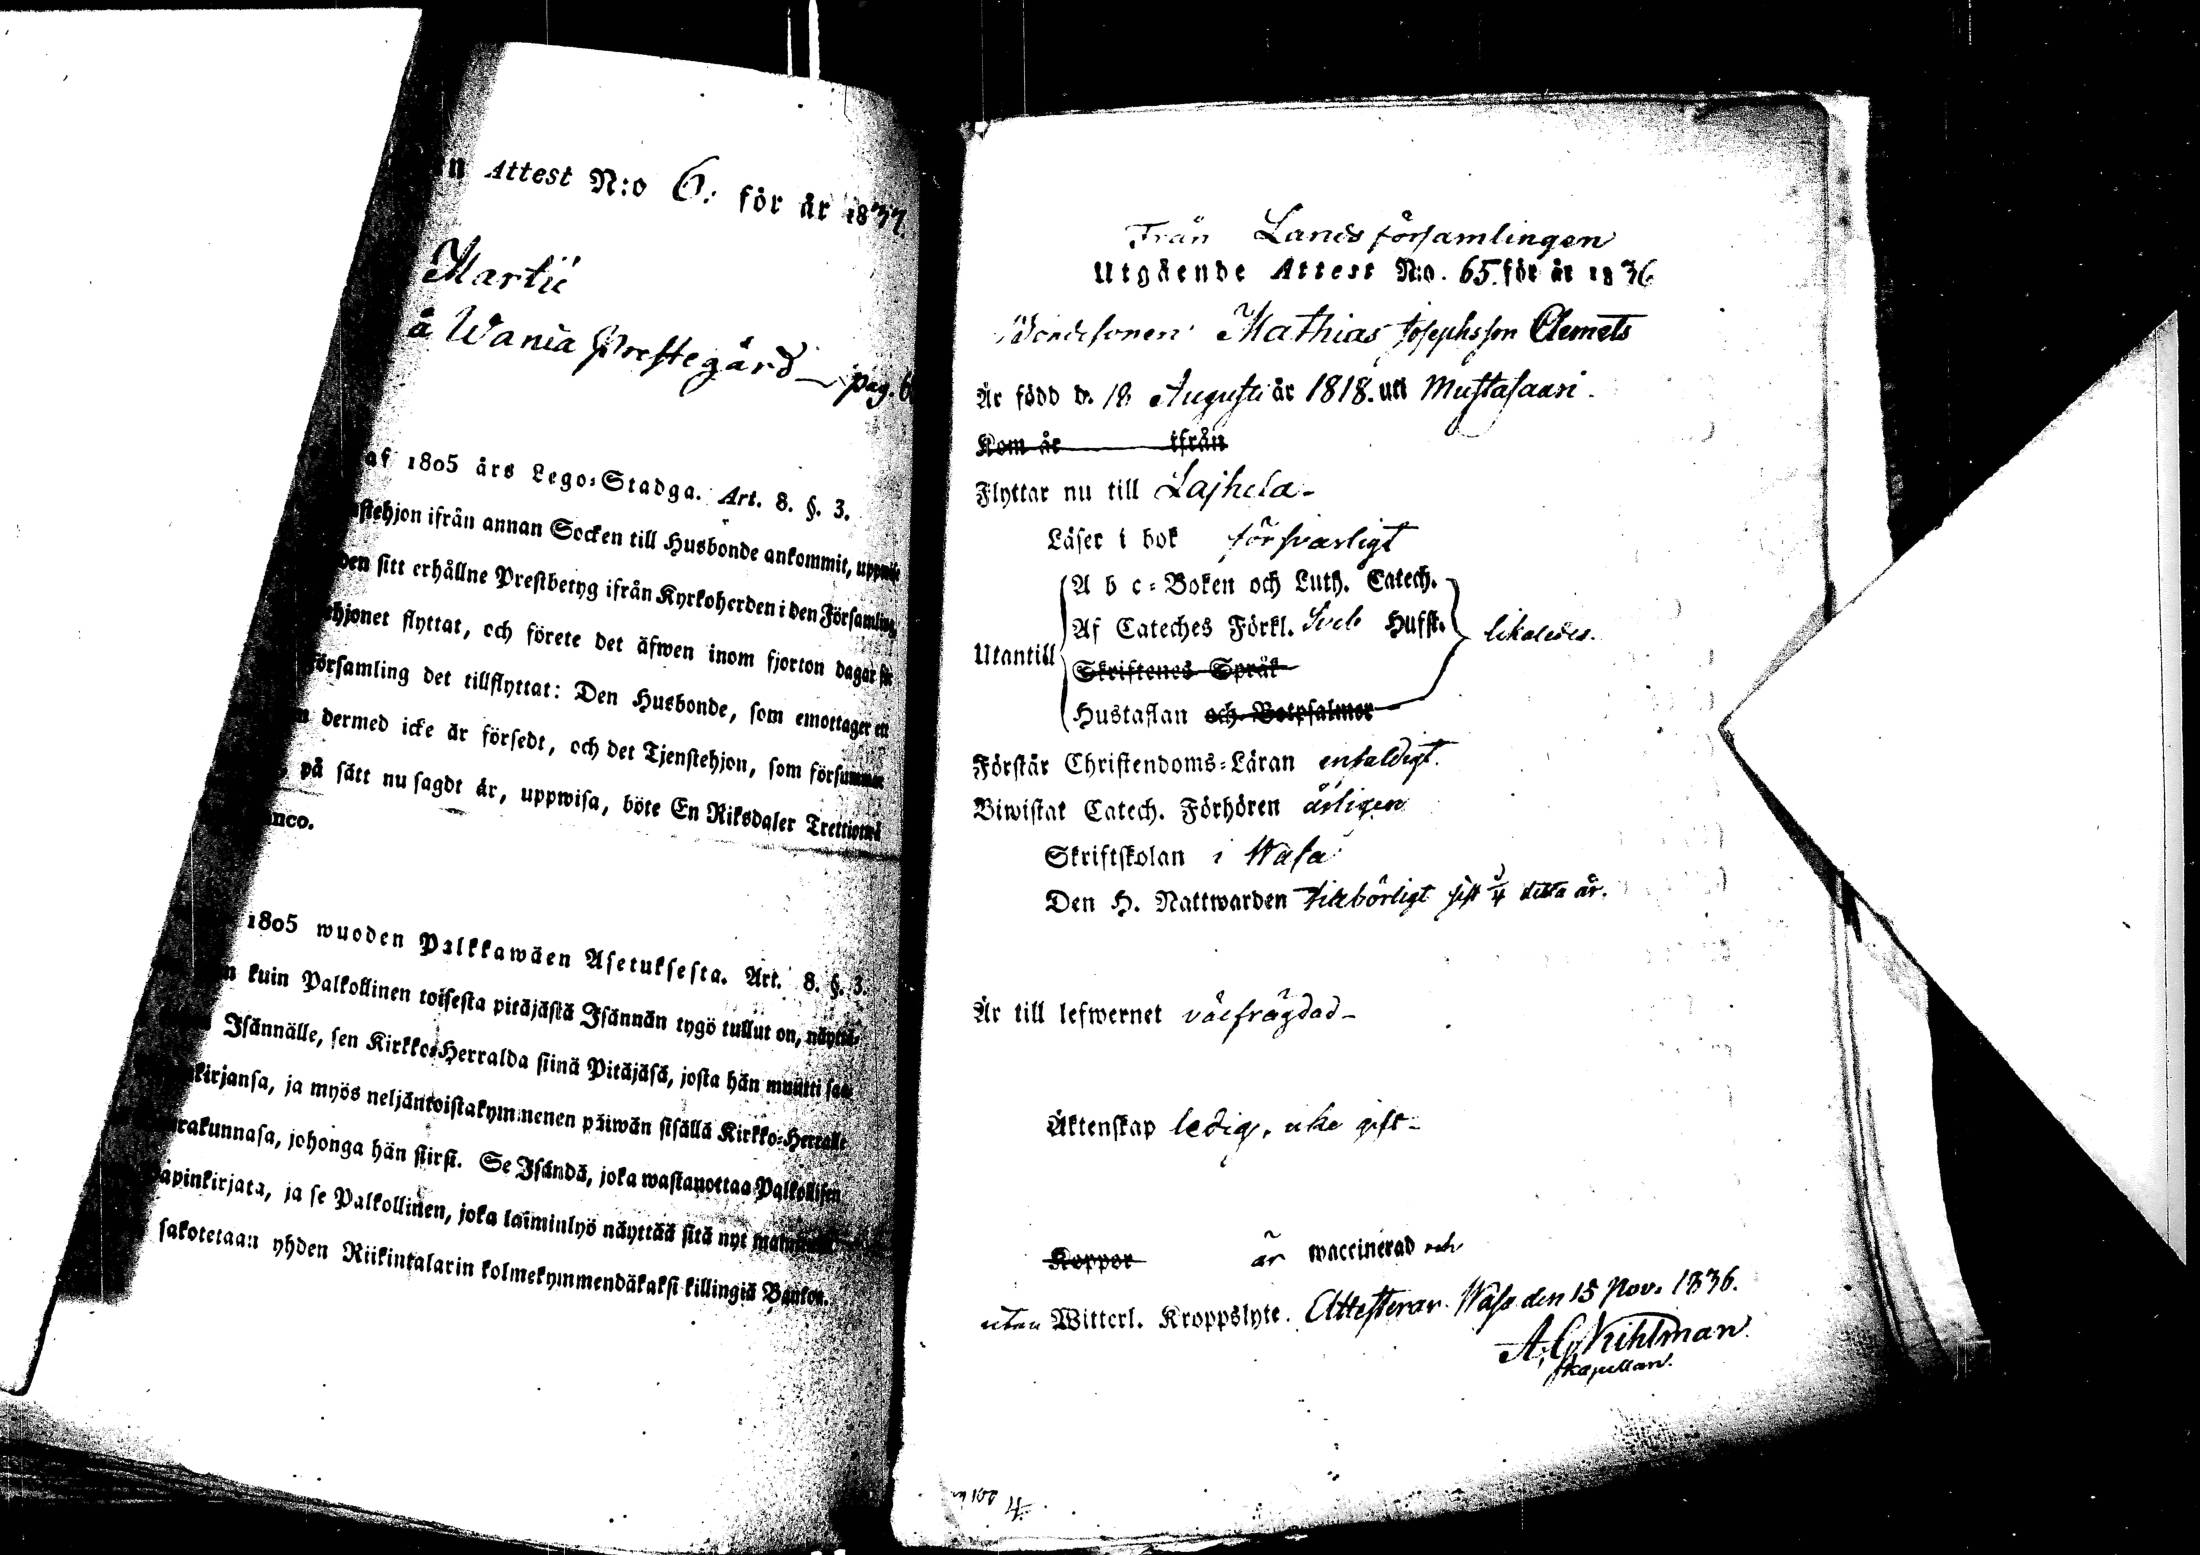 n Attest N:o 6: för år 1837.
Martii
å Wania Prestegård pag. 6
af 1805 års Lego-Stadga. Art. 8. §. 3.
stehjon ifrån annan Socken till Husbonde ankommit, uppwise
den sitt erhållne Prestbetyg ifrån Kyrkoherden i den Församling
ehjonet flyttat, och förete det äfwen inom fjorton dagar för
församling det tillflyttat: Den Husbonde, som emottager ett
dermed icke är försedt, och det Tjenstehjon, som försummar
på sätt nu sagdt är, uppwisa, böte En Riksdaler Trettiotwå
anco.
1805 wuoden Palkkawäen Asetuksesta. Art. 8. §. 3.
n kuin Palkollinen toisesta pitäjästä Isännän tygö tullut on, näyttä-
Isännälle, sen Kirkko-Herralda siinä Pitäjäsä, josta hän muutti saa
kirjansa, ja myös neljäntoistakymmenen päiwän sisällä Kirkko-Herralle
rakunnasa, johonga hän siirsi. Se Isändä, joka wastanottaa Palkollisen
apinkirjata, ja se Palkollinen, joka laiminlyö näyttää sitä nyt
sakotetaan yhden Riikintalarin kolmekymmendäkaksi killingiä Bankos.
Från Landsförsamlingen
Utgående Attest N:o. 65. för år 1836
Bondesonen Mathias Josephsson Clemets
Är född d. 18 Augusti år 1818. uti Mustasaari.
Kom år ifrån
Flyttar nu till Lajhela
Läser i bok försvarligt
A b c-Boken och Luth. Catech.
Af Cateches Förkl. Sveb Hufst.
Utantill likaledes.
Skriftenes Språk
Hustaflan och Botpsalmer
Förstår Christendoms-Läran enfaldigt.
Biwistat Catech. Förhören årligen
Skriftskolan i Wasa
Den H. Nattwarden tillbörligt sist detta år.
Är till lefwernet välfrägdad
Äktenskap ledig, icke gift
Koppor är waccinerad och
utan Witterl. Kroppslyte. Attesterar Wasa den 15 Nov. 1836.
A. G. Kihlman
Kapellan.